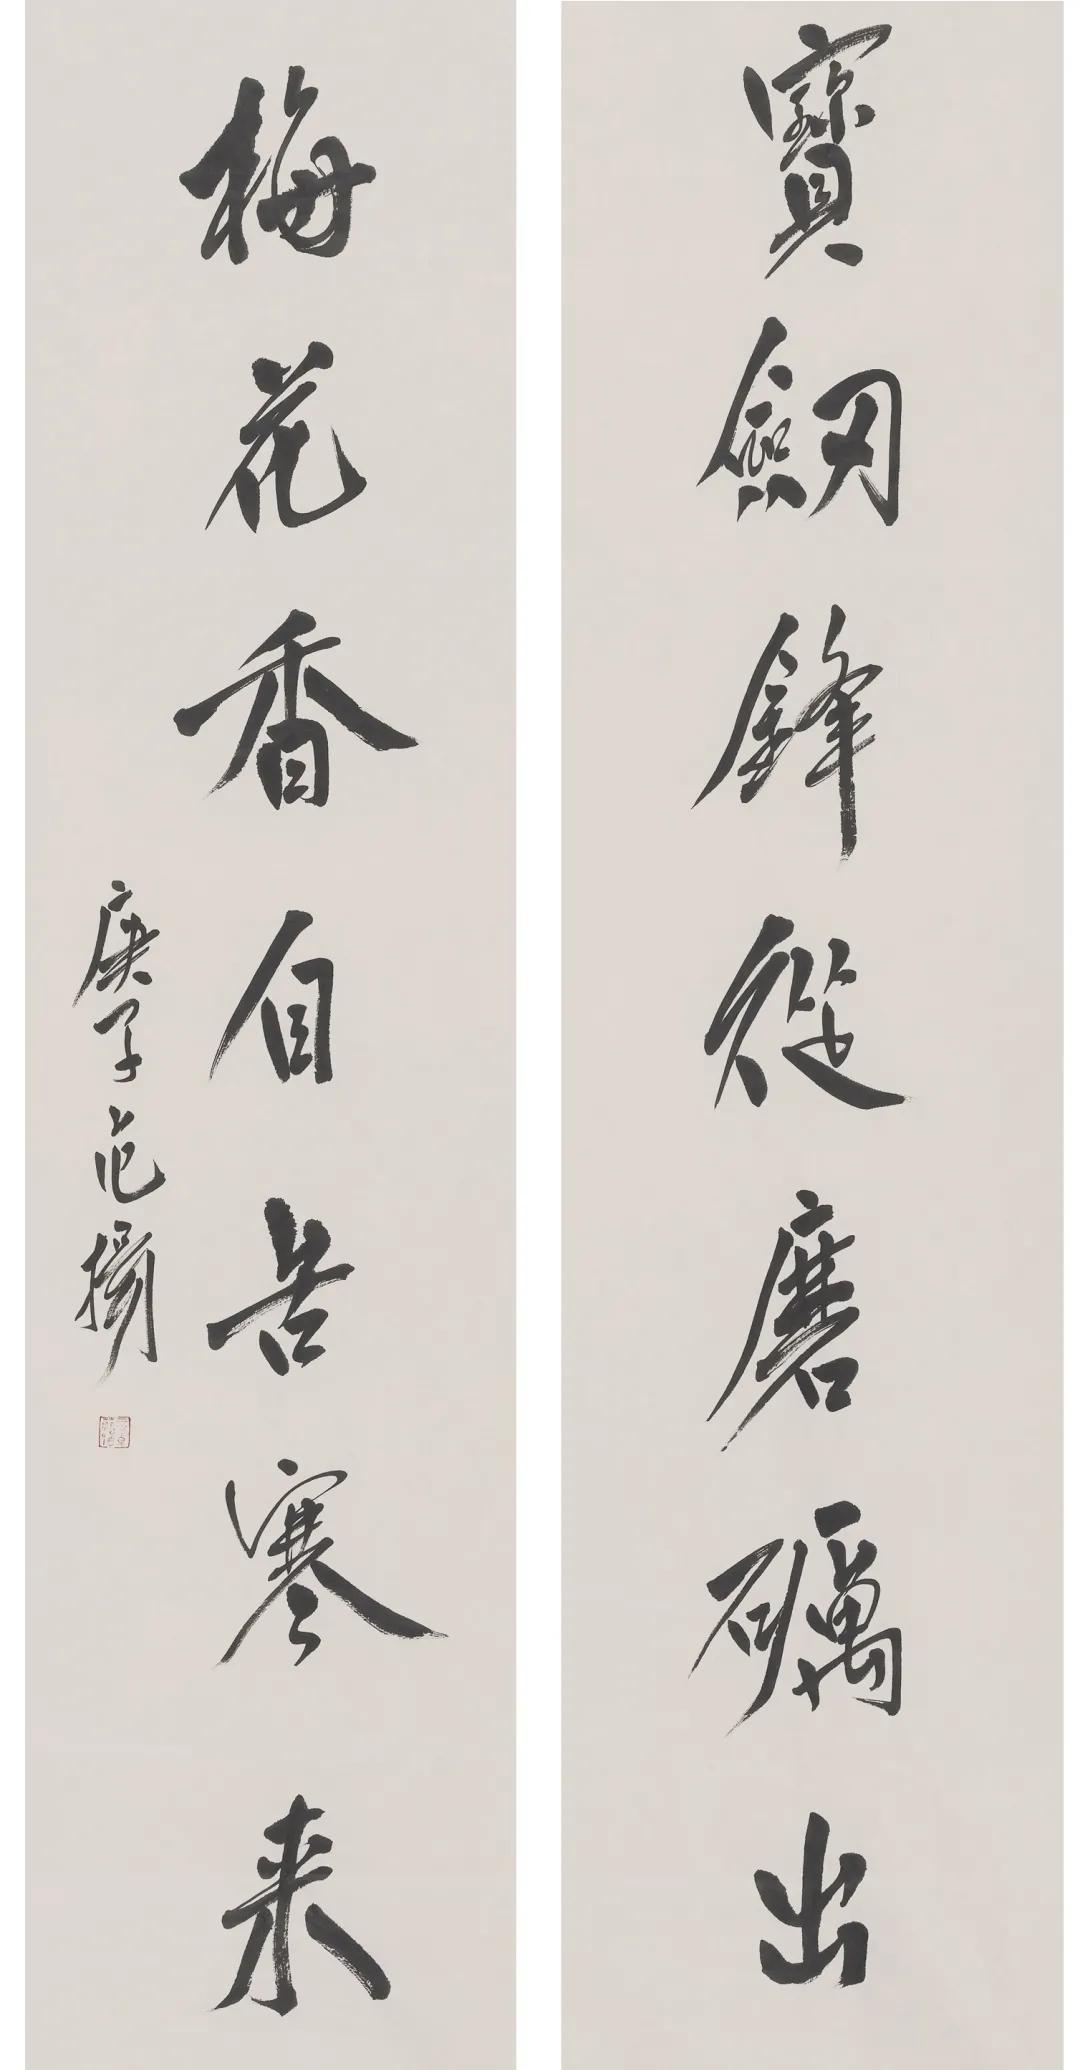 寶劒鋒從磨礪出
梅花香自苦寒來
庚子范揚